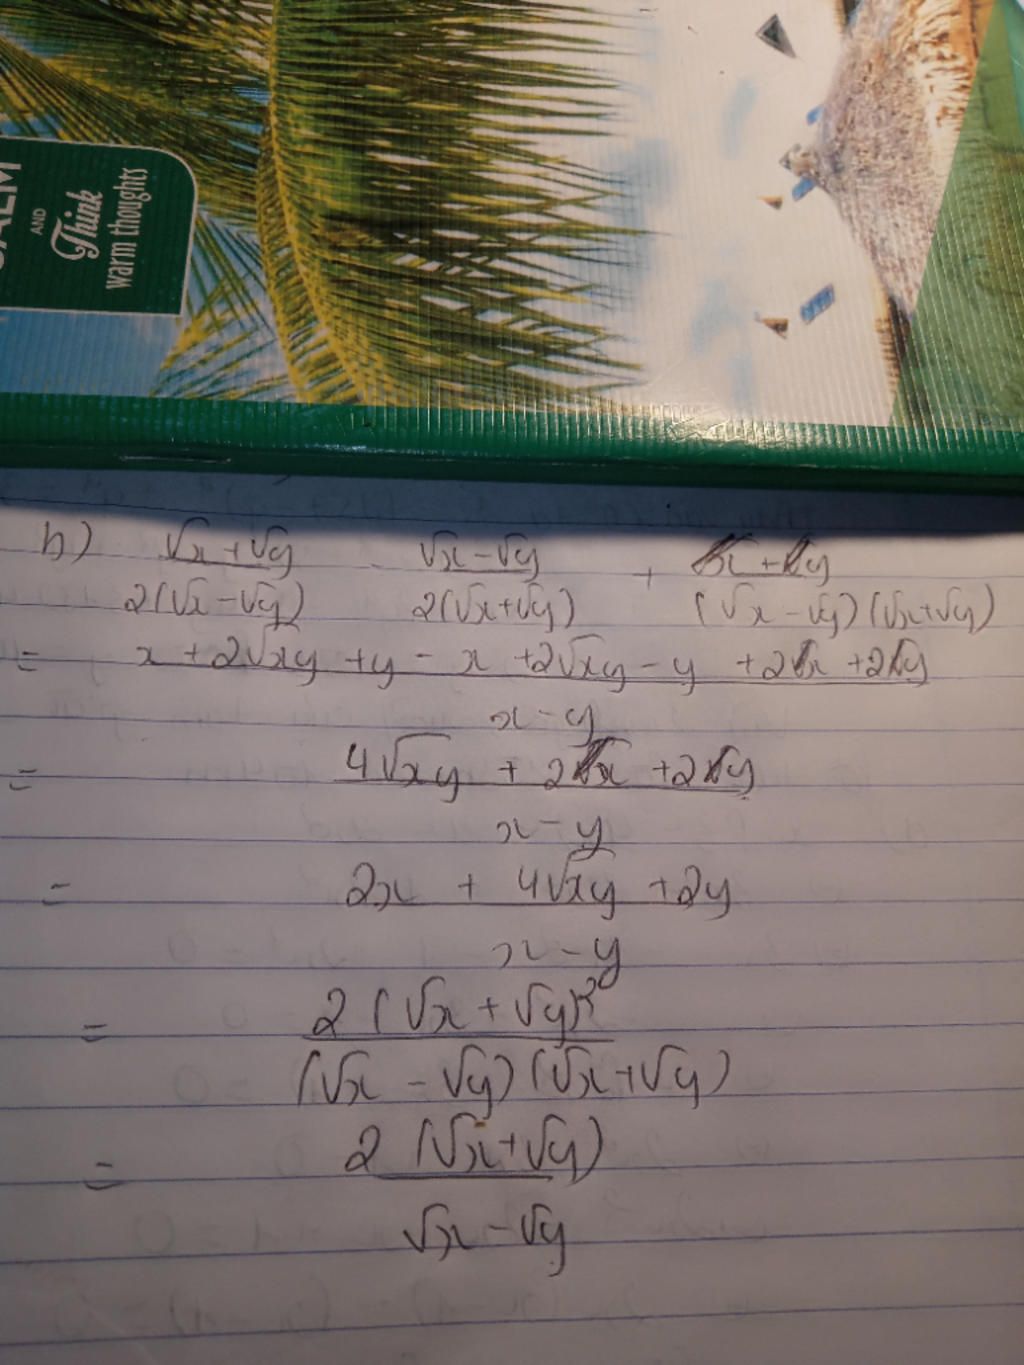 CALM
AND
Think
warm thoughts
b) √x+√y / 2(√x-√y) - √x-√y / 2(√x+√y) + x+y / (√x-√y)(√x+√y)
= x+2√xy+y-x+2√xy-y+2x+2y / x-y
= 4√xy+2x+2y / x-y
= 2x+4√xy+2y / x-y
= 2(√x+√y)² / (√x-√y)(√x+√y)
= 2(√x+√y) / √x-√y